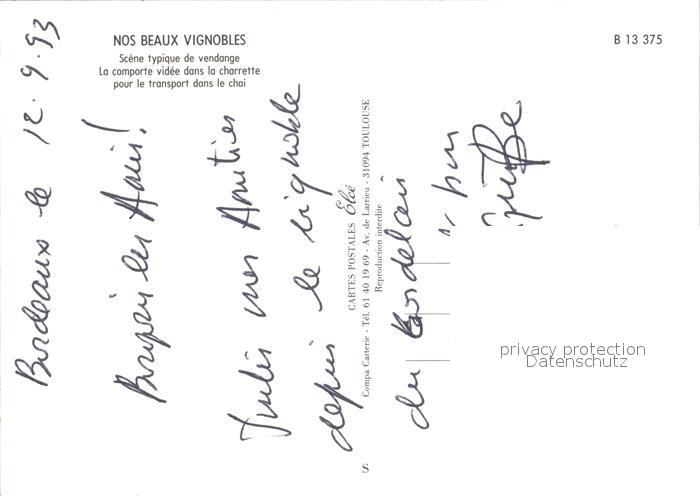 NOS BEAUX VIGNOBLES
Scène typique de vendange
La comporte vidée dans la charrette
pour le transport dans le chai
B 13 375
Bordeaux le 12.9.93
les Amis!
mes Amitiés
depuis le vignoble
du Bordelais
CARTES POSTALES Elcé
Compa Carterie - Tél. 61 40 19 69 - Av. de Larrieu - 31094 TOULOUSE
Reproduction interdite
S
privacy protection
Datenschutz